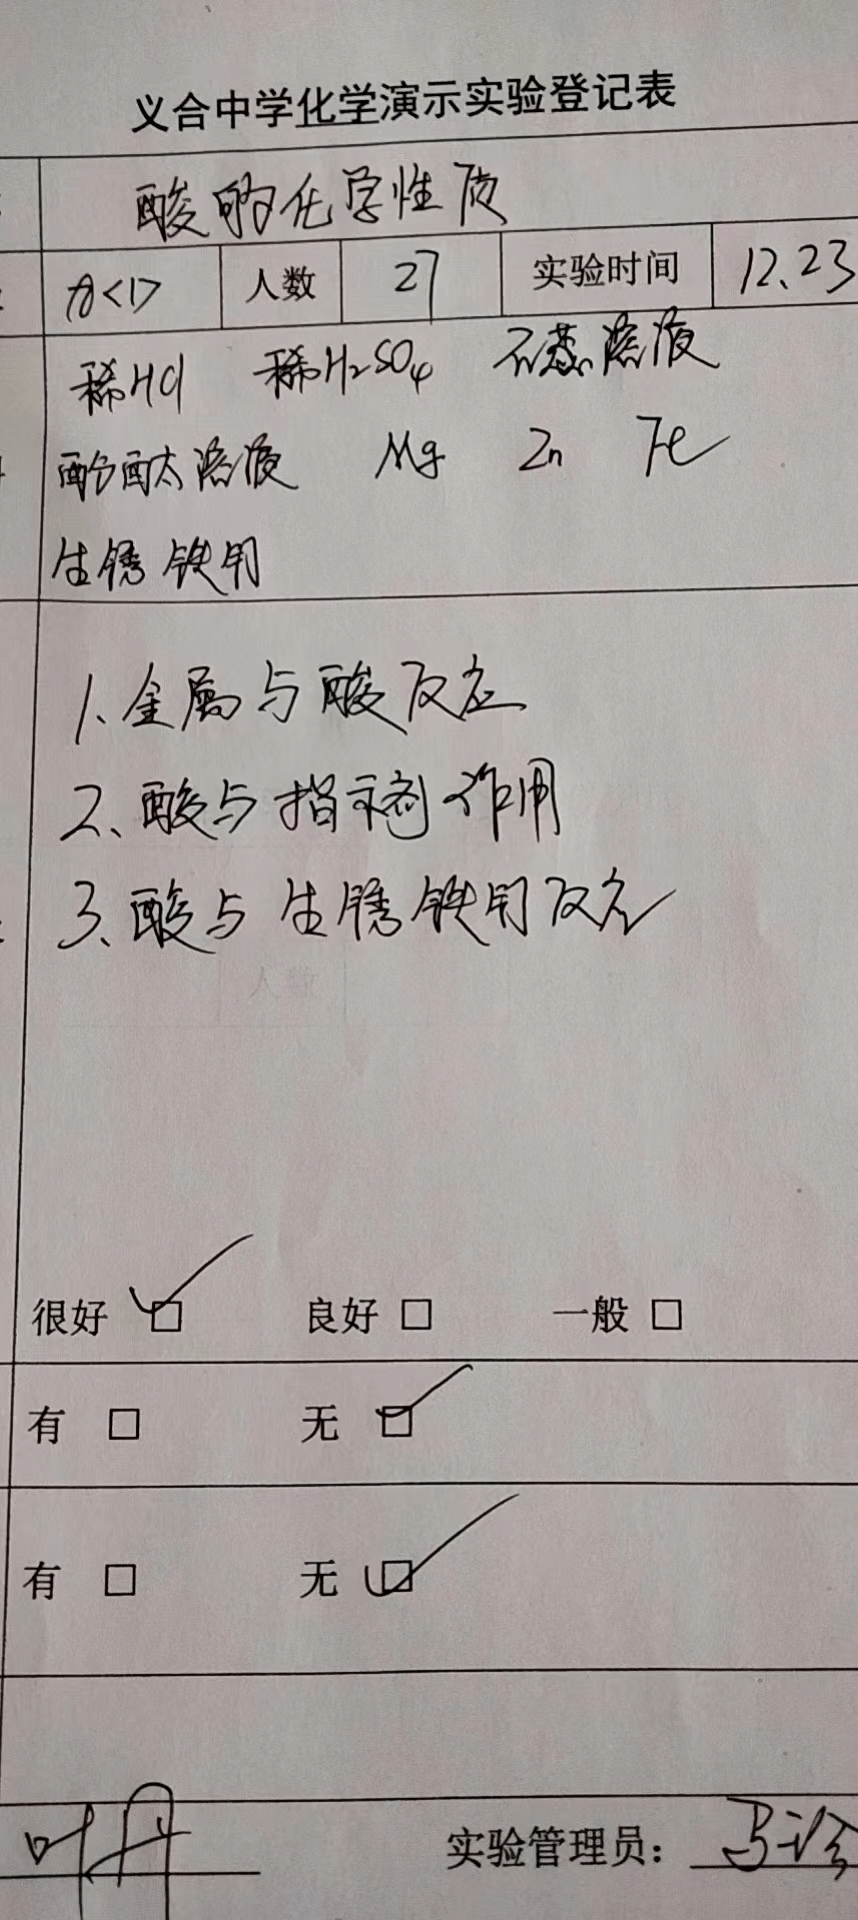 义合中学化学演示实验登记表
酸的化学性质
九<1> 人数 27 实验时间 12.23
稀HCl 稀H₂SO₄ 石蕊溶液
酚酞溶液 Mg Zn Fe
生锈铁钉
1、金属与酸反应
2、酸与指示剂作用
3、酸与生锈铁钉反应
人数
很好 ☑ 良好 □ 一般 □
有 □ 无 ☑
有 □ 无 ☑
叶丹 实验管理员：